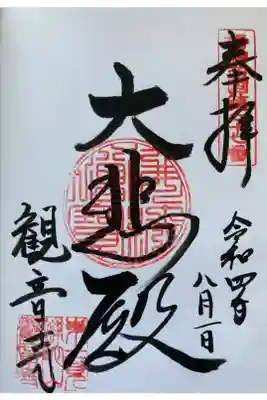 奉拝
令和四年
八月一日
大悲殿
観音寺